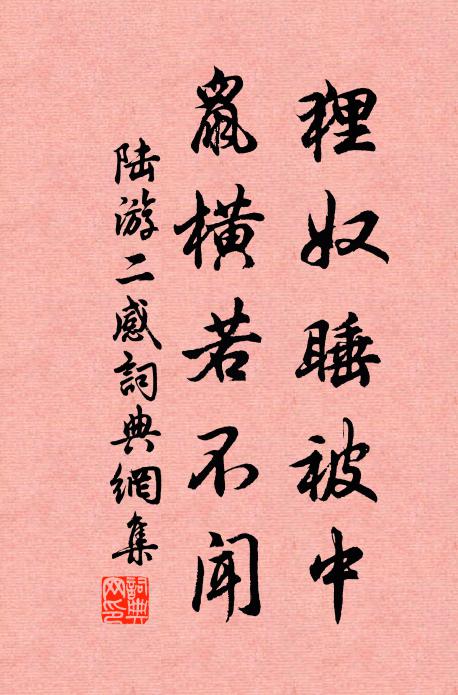 裡奴睡被中
鼠橫若不聞
陆游二感詞典網集
詞典网印